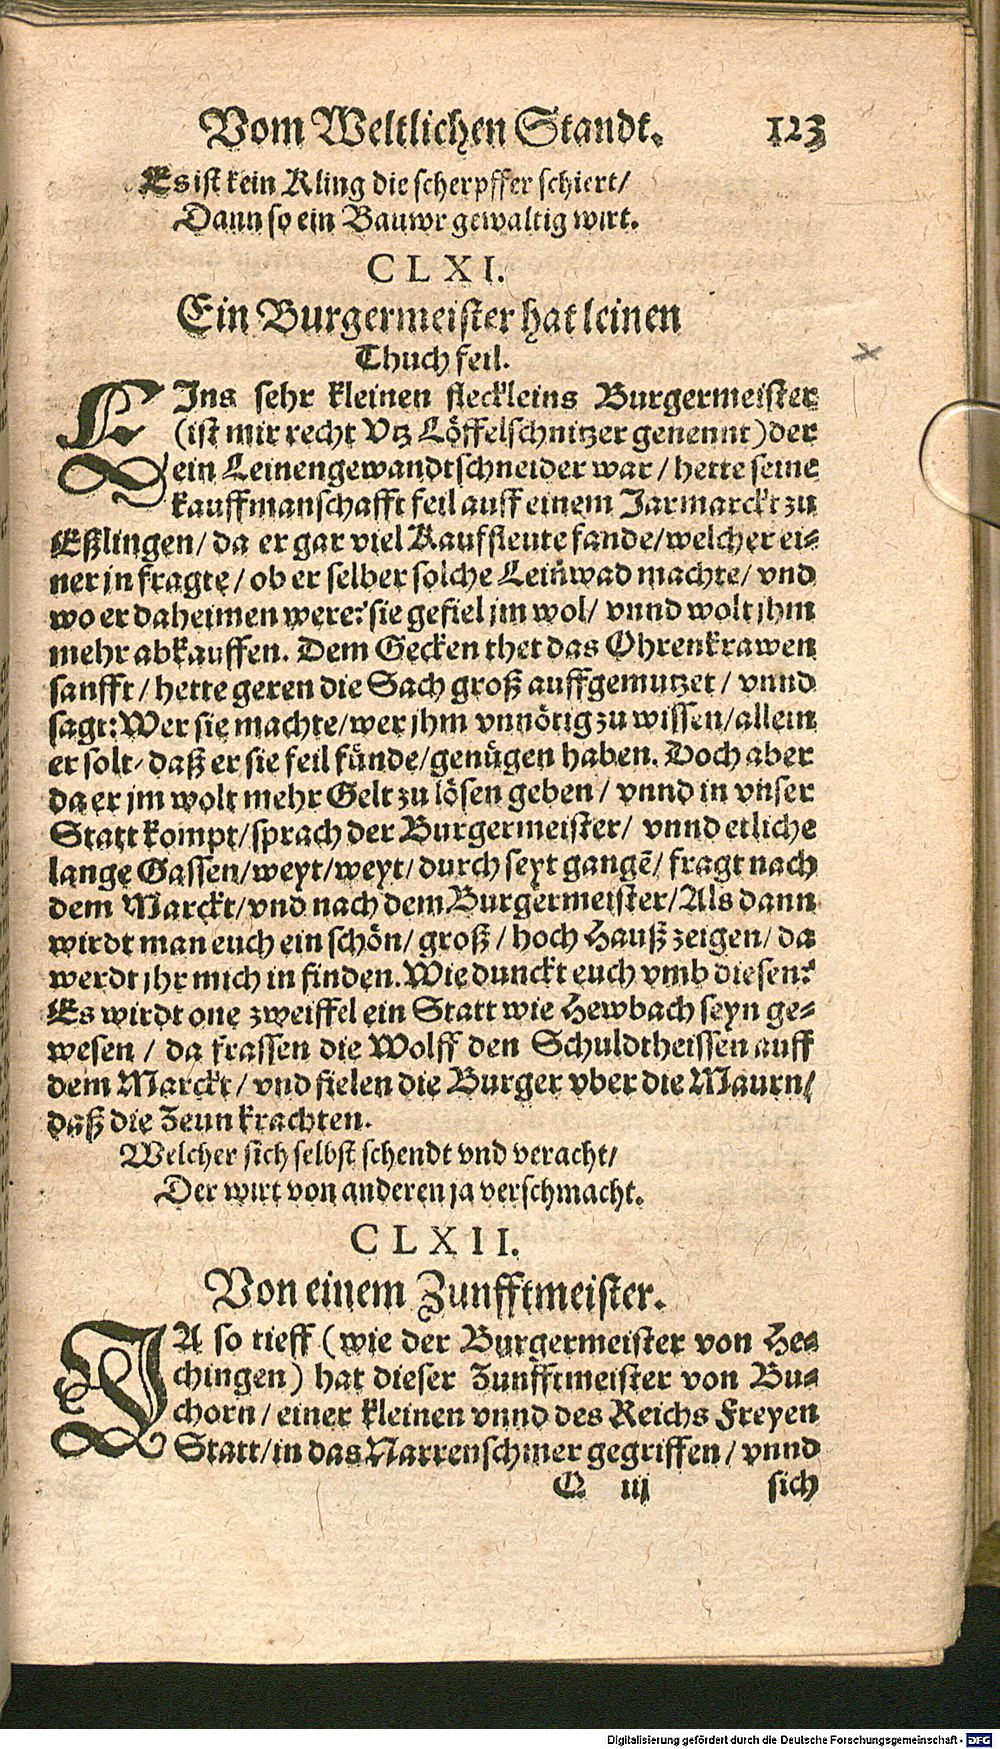 Vom Weltlichen Standt. 123
Es ist kein Kling die scherpffer schiert/
Dann so ein Bauwr gewaltig wirt.
CLXI.
Ein Burgermeister hat leinen
Thuch feil.
EIns sehr kleinen fleckleins Burgermeister
(ist mir recht Vtz Löffelschnitzer genennt) der
ein Leinengewandtschneider war / hette seine
kauffmanschafft feil auff einem Jarmarckt zu
Eßlingen / da er gar viel Kaufsleute fande / welcher ei-
ner jn fragte / ob er selber solche Leinwad machte / vnd
wo er daheimen were: sie gefiel jm wol / vnnd wolt jhm
mehr abkauffen. Dem Gecken thet das Ohrenkrawen
sanfft / hette geren die Sach groß auffgemutzet / vnnd
sagt: Wer sie machte / wer jhm vnnötig zu wissen / allein
er solt / daß er sie feil fünde / genügen haben. Doch aber
da er jm wolt mehr Gelt zu lösen geben / vnnd in vnser
Statt kompt / sprach der Burgermeister / vnnd etliche
lange Gassen / weyt / weyt / durch seyt gangē / fragt nach
dem Marckt / vnd nach dem Burgermeister / Als dann
wirdt man euch ein schön / groß / hoch Hauß zeigen / da
werdt jhr mich in finden. Wie dunckt euch vmb diesen?
Es wirdt one zweiffel ein Statt wie Hewbach seyn ge-
wesen / da frassen die Wolff den Schuldtheissen auff
dem Marckt / vnd fielen die Burger vber die Maurn /
daß die Zeun krachten.
Welcher sich selbst schendt vnd veracht /
Der wirt von anderen ja verschmacht.
CLXII.
Von einem Zunfftmeister.
JA so tieff (wie der Burgermeister von He-
chingen) hat dieser Zunfftmeister von Bu-
chorn / einer kleinen vnnd des Reichs Freyen
Statt / in das Narrenschmer gegriffen / vnnd
Q iij sich
Digitalisierung gefördert durch die Deutsche Forschungsgemeinschaft - DFG